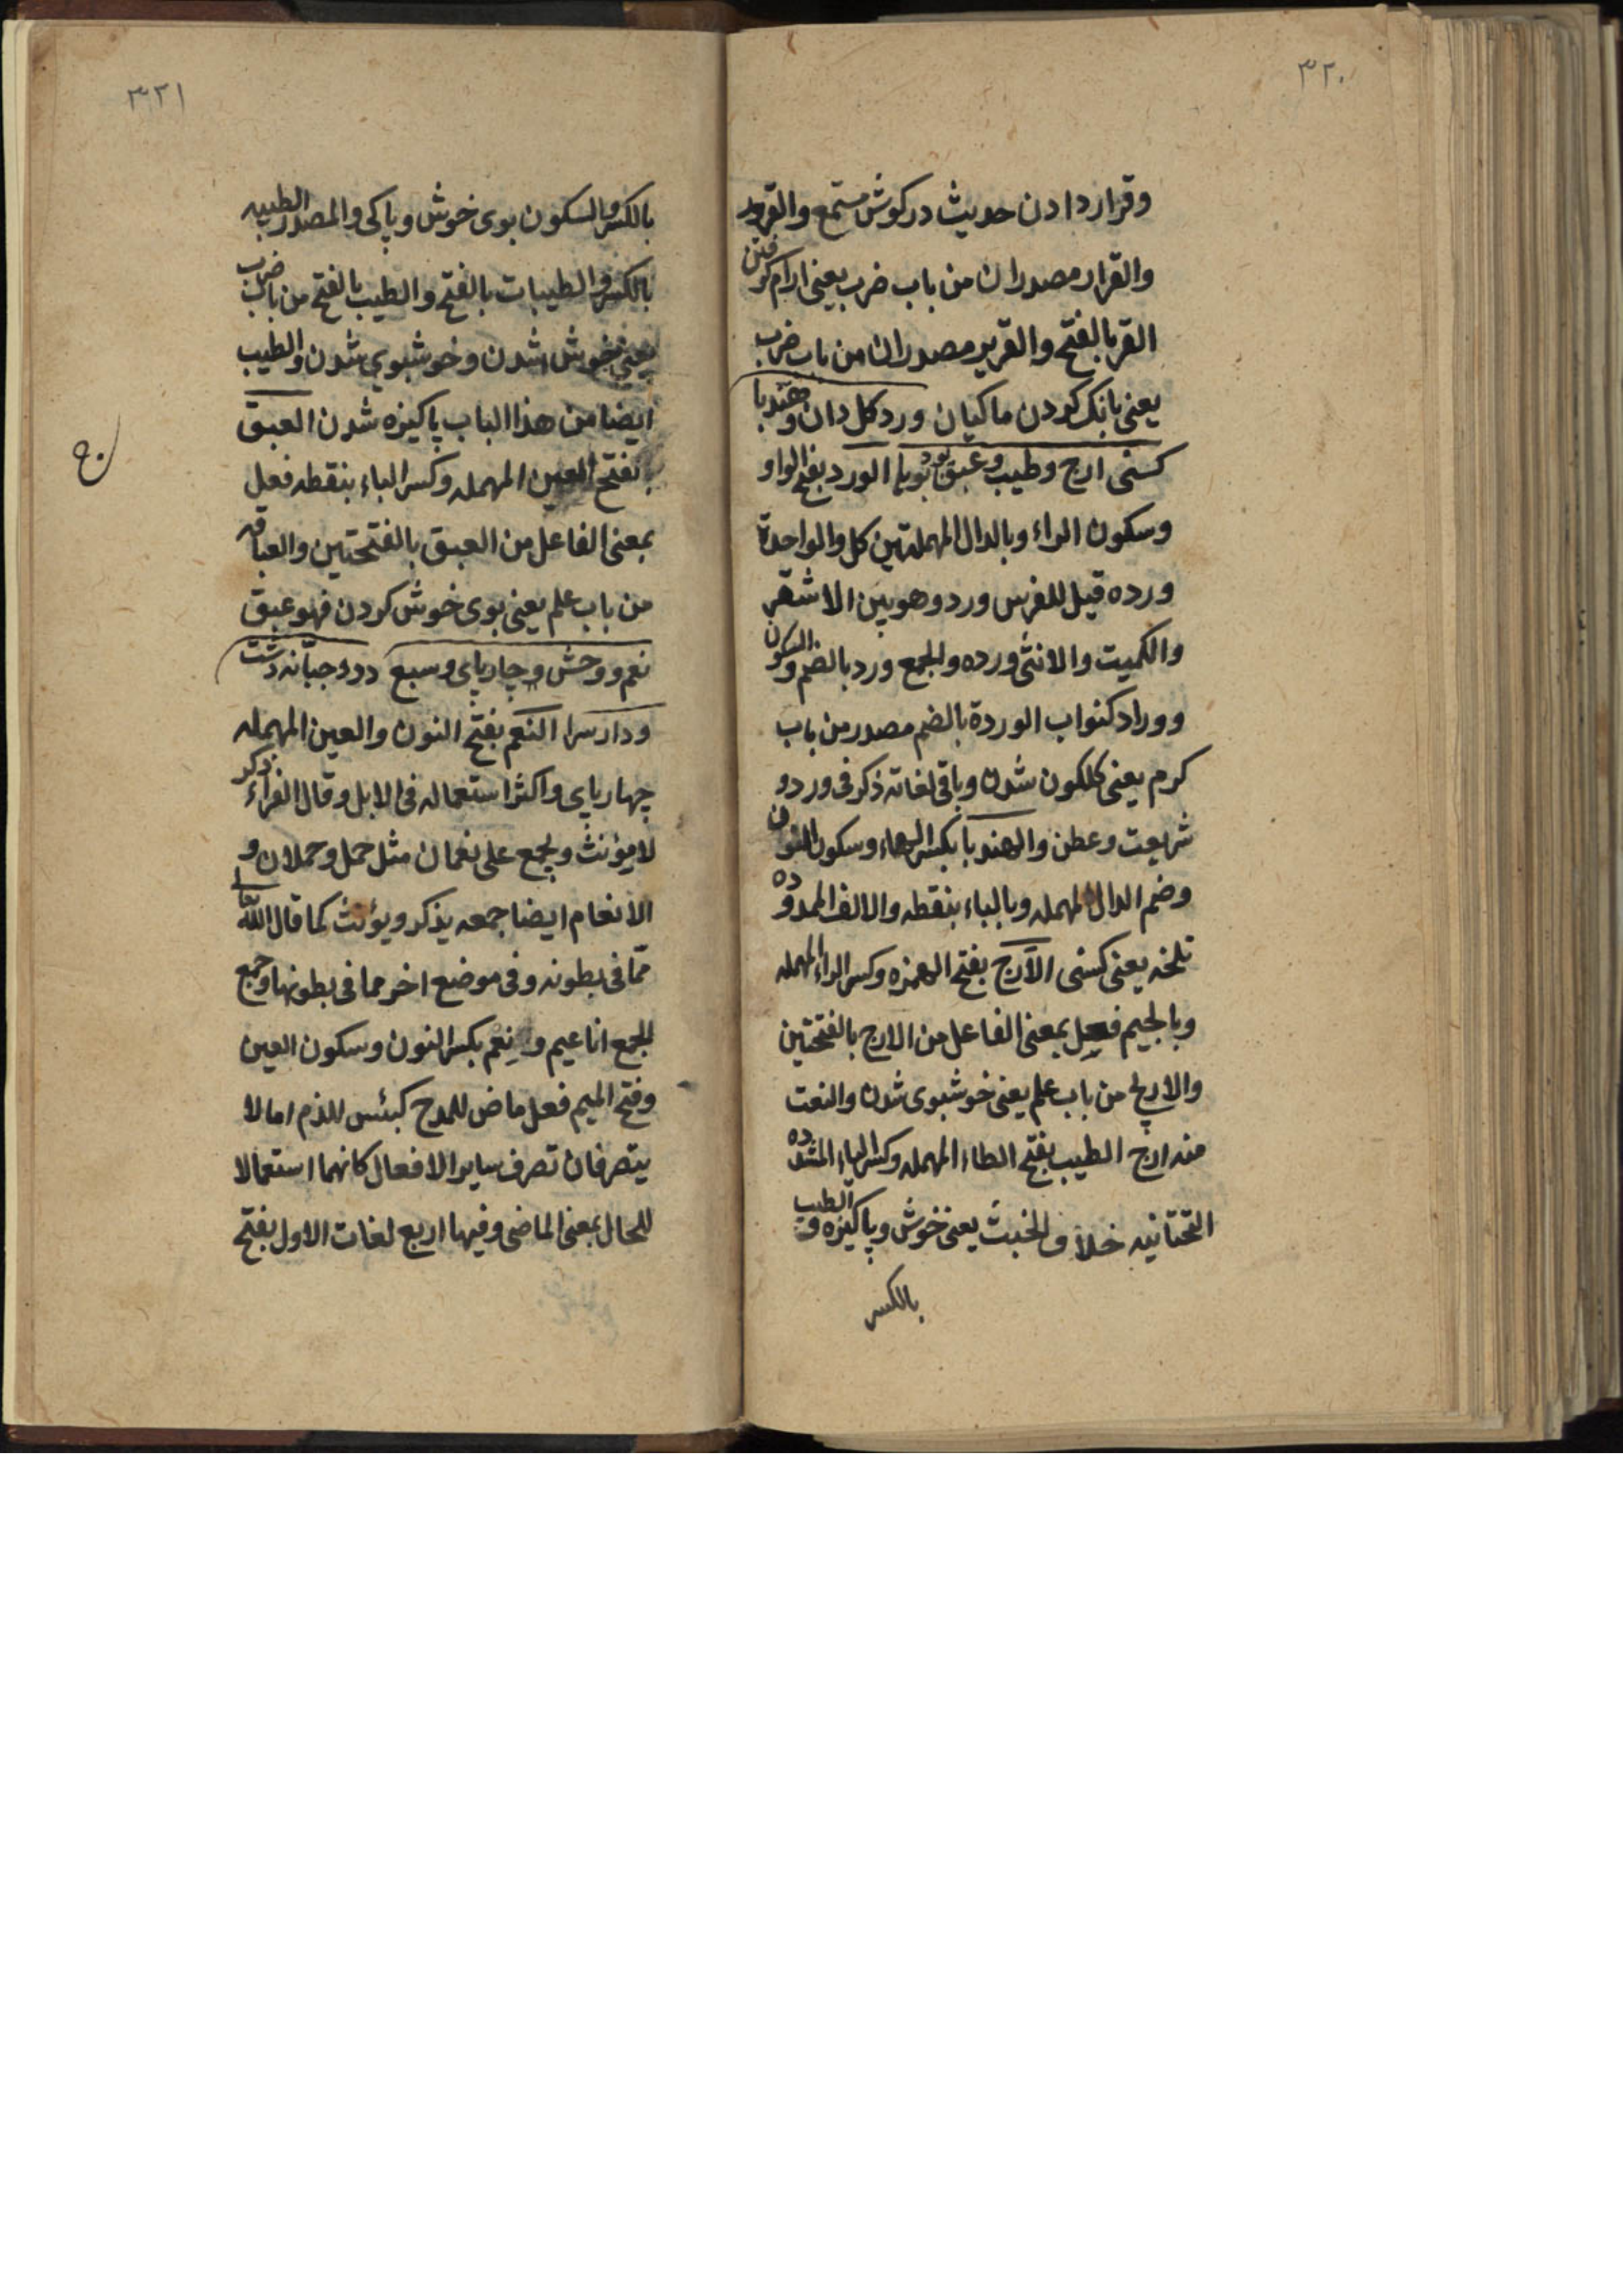 ٣٢٠
وقرار دادن حدیث در کوش مستمع والقرور
والقرار مصدران من باب ضرب یعنی ارام کرفتن
القر بالفتح والقریر مصدران من باب ضرب
یعنی بانک کردن ماکیان ورد کل دان و هندبا
کسنی ارج وطیب وعبق بود بویا الورد بفتح الواو
وسکون الراء وبالدال المهملتین کل والواحدة
ورده قیل للفرس ورد وهو بین الاشقر
والکمیت والانثی ورده والجمع ورد بالضم والسکون
ووراد کنواب الوردة بالضم مصدر من باب
کرم یعنی کلکون شدن وباقی لغاته ذکر فی ورد و
شریعت وعطن والهندبا بکسر الهاء وسکون النون
وضم الدال المهمله وبالباء بنقطه والالف الممدوده
تلخه یعنی کسنی الارج بفتح الهمزه وکسر الراء المهمله
وبالجیم فعل بمعنی الفاعل من الارج بالفتحتین
والاریج من باب علم یعنی خوشبوی شدن والنعت
منه ارج الطیب بفتح الطاء المهمله وکسر الیاء المشدده
التحتانیه خلاف الخبیث یعنی خوش وپاکیزه والطیب
بالکسر
٣٢١
بالکسر والسکون بوی خوش وپاکی والمصدر الطیبه
بالکسر والطیبات بالفتح والطیب بالفتح من باب ضرب
یعنی خوش شدن وخوشبوی شدن والطیب
ایضا من هذا الباب پاکیزه شدن العبق
بفتح العین المهمله وکسر الباء بنقطه فعل
بمعنی الفاعل من العبق بالفتحتین والعباقه
من باب علم یعنی بوی خوش کردن فهو عبق
نعم ووحش وچارپای وسبع دد وجبانه دشت
ودار سرا النعم بفتح النون والعین المهمله
چهارپای واکثر استعماله فی الابل وقال الفراء ذکر
لا یؤنث ویجمع علی نعمان مثل حمل وحملان و
الانعام ایضا جمعه یذکر ویؤنث کما قال الله تعا
مما فی بطونه وفی موضع اخر مما فی بطونها وجمع
الجمع اناعیم و نعم بکسر النون وسکون العین
وفتح المیم فعل ماض للمدح کبئس للذم اما لا
یتصرفان تصرف سایر الافعال کانهما استعمالا
للحال بمعنی الماضی وفیها اربع لغات الاول بفتح